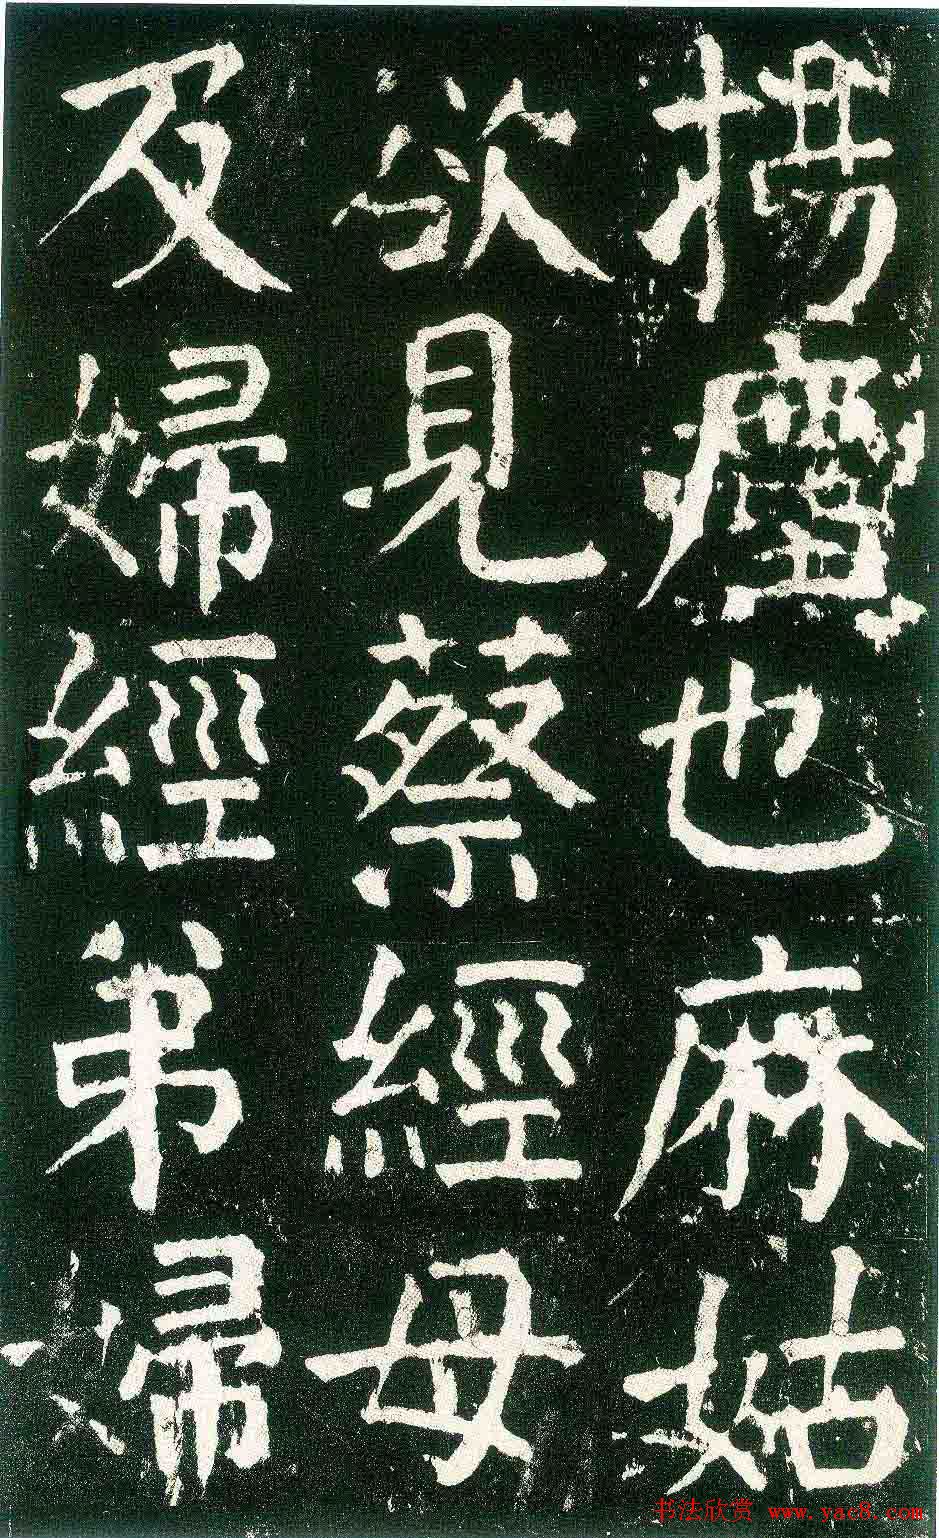 揚塵也麻姑
欲見蔡經母
及婦經弟婦
书法欣赏 www.yac8.com